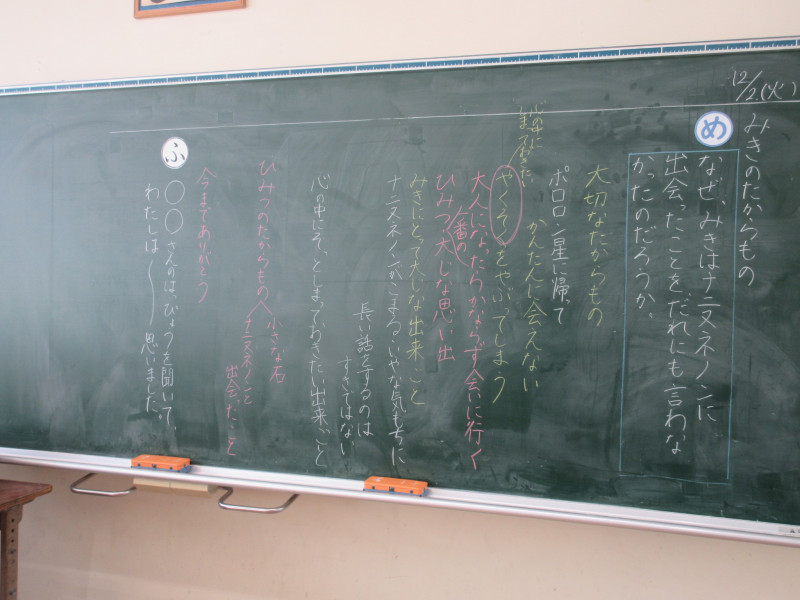 12/2(火)
みきのたからもの
め
なぜ、みきはナニヌネノンに
出会ったことを、だれにも言わな
かったのだろうか。
大切なたからもの
ポロロン星に帰って
かんたんに会えない
心の中に
しまっておきたい
やくそくをやぶってしまう
大人になったらかならず会いに行く
ひみつ
一番の
大じな思い出
みきにとって大じな出来ごと
ナニヌネノンがこまる・いやな気もちに
長い話をするのは
すきではない
心の中にそっとしまっておきたい出来ごと
ひみつのたからもの
小さな石
ナニヌネノンと
出会ったこと
今までありがとう
ふ
〇〇さんの、はっぴょうを聞いて、
わたしは〜思いました。